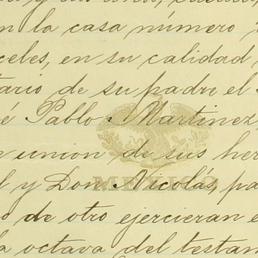 n la casa número
celes, en su calidad
tario de su padre el
é Pablo Martinez,
n union de sus her
l y Don Nicolás, pa
o de otro ejercieran e
la octava del testam
MEXICO